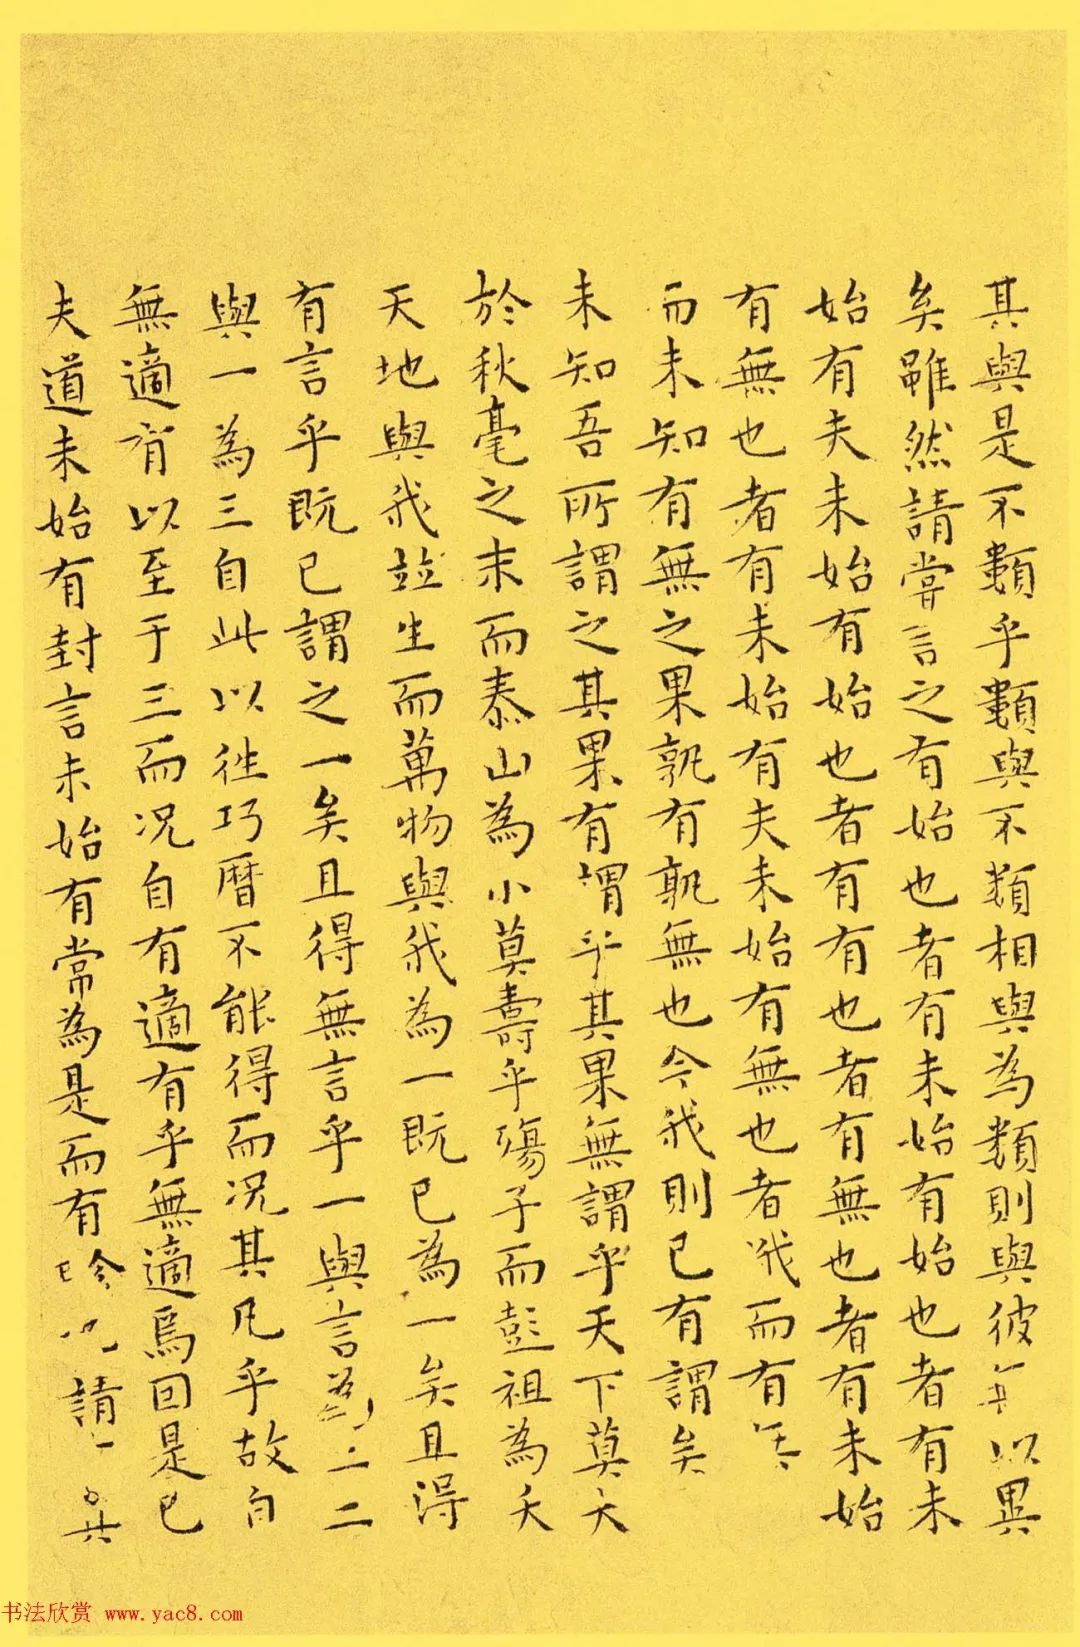 其與是不類乎類與不類相與為類則與彼無以異
矣雖然請嘗言之有始也者有未始有始也者有未
始有夫未始有始也者有有也者有無也者有未始
有無也者有未始有夫未始有無也者我而有
而未知有無之果孰有孰無也今我則已有謂矣
未知吾所謂之其果有謂乎其果無謂乎天下莫大
於秋毫之末而泰山為小莫壽乎殤子而彭祖為夭
天地與我竝生而萬物與我為一既已為一矣且得
有言乎既已謂之一矣且得無言乎一與言為二二
與一為三自此以往巧曆不能得而況其凡乎故自
無適有以至于三而況自有適有乎無適焉因是已
夫道未始有封言未始有常為是而有畛也請言其
书法欣赏 www.yac8.com